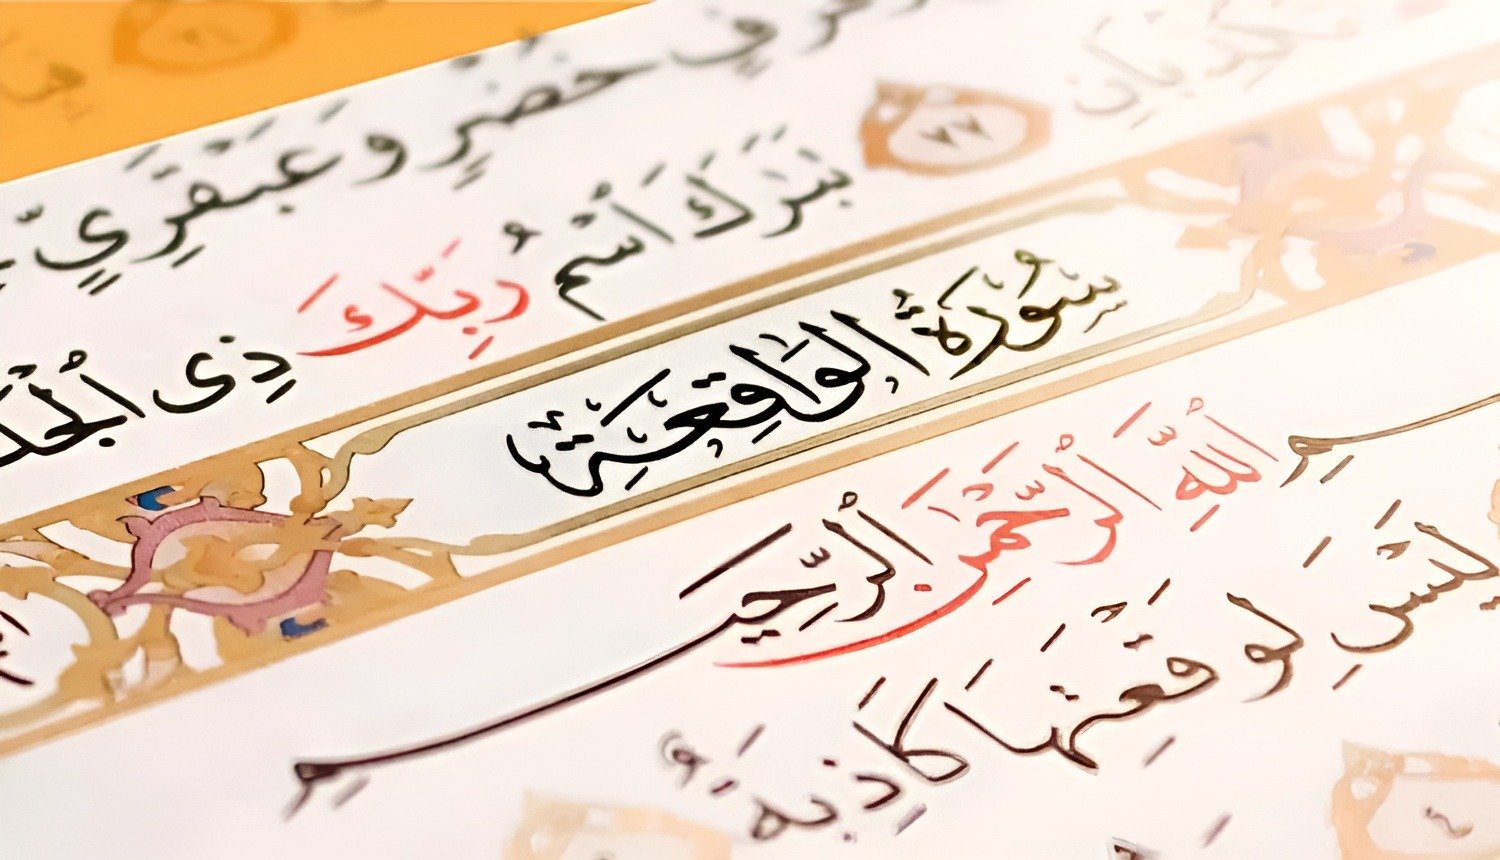 خُضْرٍ وَعَبْقَرِيٍّ
تُكَذِّبَانِ ٧٧ تَبَٰرَكَ ٱسْمُ رَبِّكَ ذِى
سُورَةُ الوَاقِعَةِ
ٱللَّهِ ٱلرَّحْمَٰنِ ٱلرَّحِيمِ
لَيْسَ لِوَقْعَتِهَا كَاذِبَةٌ